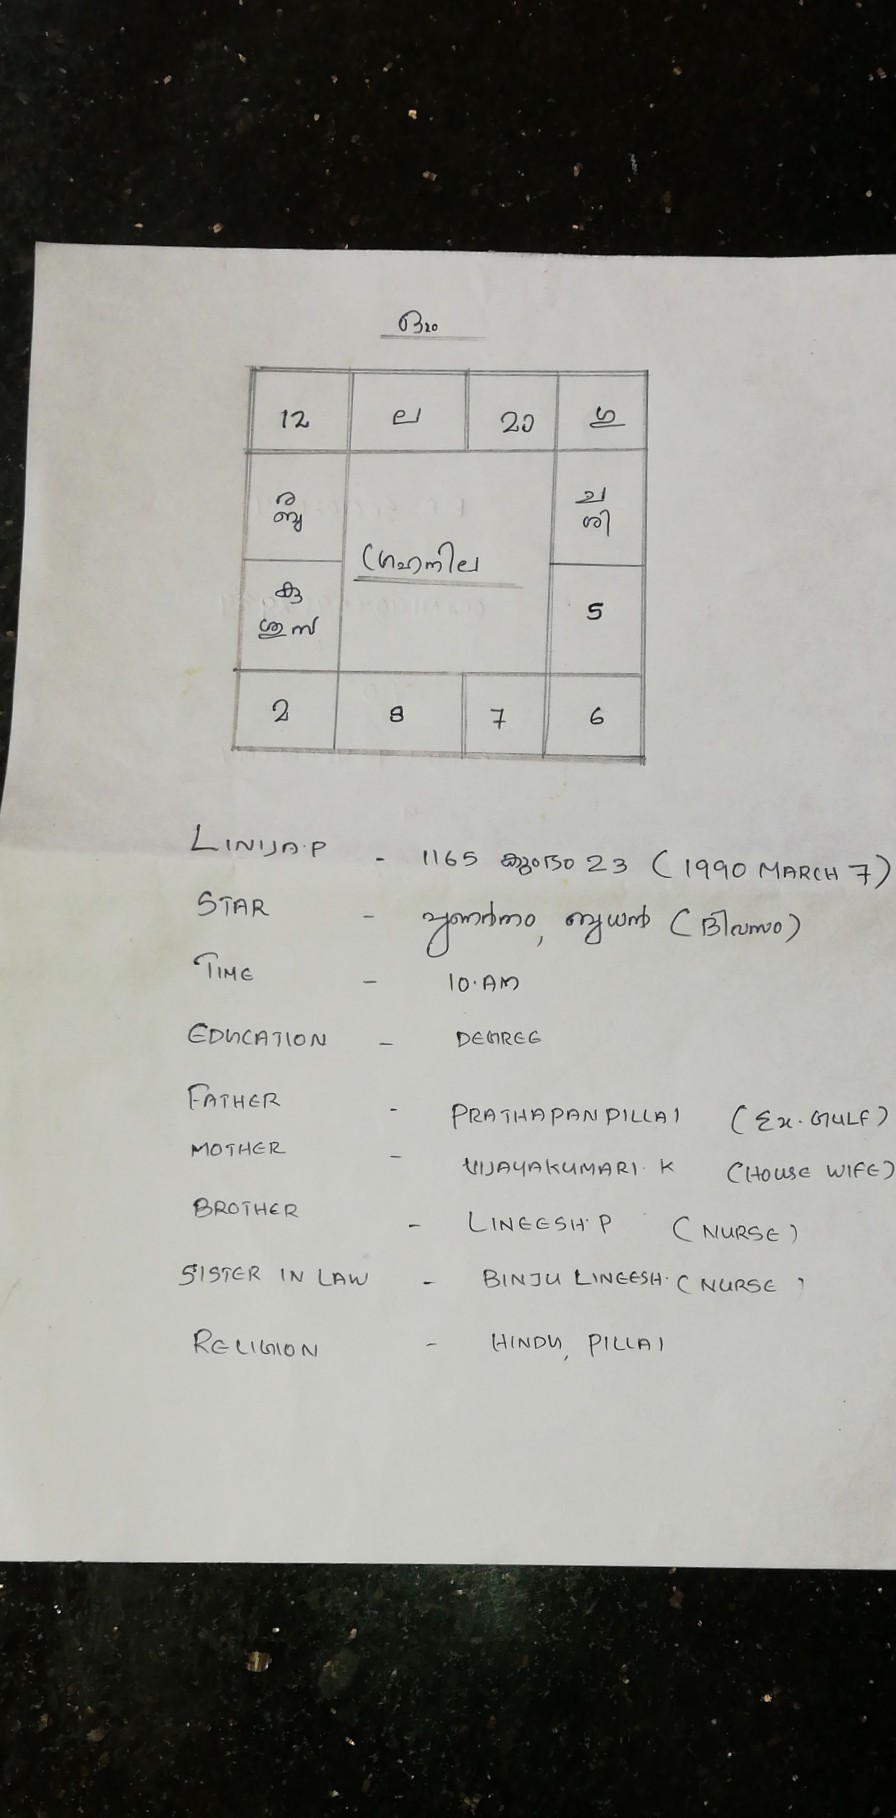 ഓം
12 ല 20 ഗു
ര ച
ബു ശി
ഗ്രഹനില
കു 5
ശു സ
2 8 7 6
LINIJA.P - 1165 കുംഭം 23 (1990 MARCH 7)
STAR - പുണർതം, ബുധൻ (ദിവസം)
TIME - 10.AM
EDUCATION - DEGREE
FATHER - PRATHAPAN PILLAI (Ex. GULF)
MOTHER - VIJAYAKUMARI. K (HOUSE WIFE)
BROTHER - LINEESH.P (NURSE)
SISTER IN LAW - BINJU LINEESH. (NURSE)
RELIGION - HINDU, PILLAI